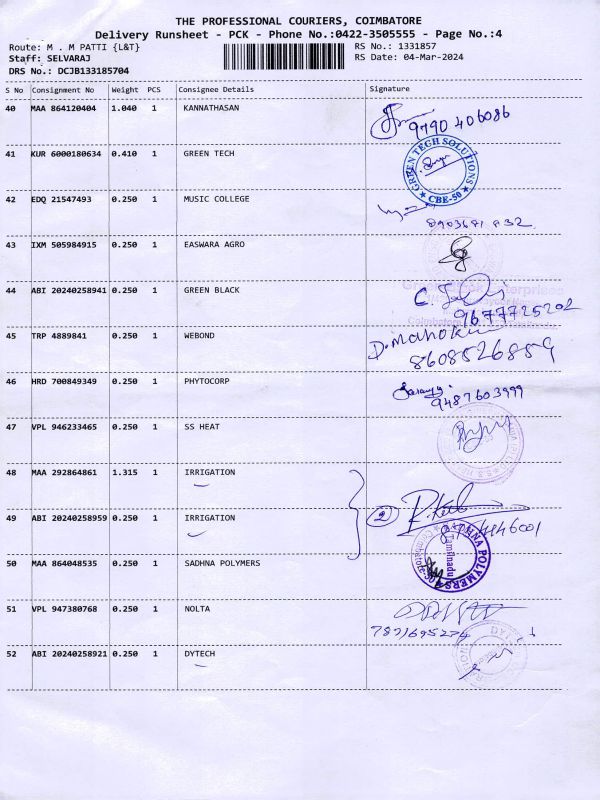 THE PROFESSIONAL COURIERS, COIMBATORE
Delivery Runsheet - PCK - Phone No.:0422-3505555 - Page No.:4
Route: M . M PATTI {L&T}
RS No.: 1331857
Staff: SELVARAJ
RS Date: 04-Mar-2024
DRS No.: DCJB133185704
S No Consignment No Weight PCS Consignee Details Signature
40 MAA 864120404 1.040 1 KANNATHASAN
9790 406086
41 KUR 6000180634 0.410 1 GREEN TECH
GREEN TECH SOLUTIONS
CBE-50
42 EDQ 21547493 0.250 1 MUSIC COLLEGE
8903681 832
43 IXM 505984915 0.250 1 EASWARA AGRO
44 ABI 20240258941 0.250 1 GREEN BLACK
9677725202
45 TRP 4889841 0.250 1 WEBOND
8608526859
46 HRD 700849349 0.250 1 PHYTOCORP
9487603999
47 VPL 946233465 0.250 1 SS HEAT
48 MAA 292864861 1.315 1 IRRIGATION
49 ABI 20240258959 0.250 1 IRRIGATION
2
50 MAA 864048535 0.250 1 SADHNA POLYMERS
Tamilnadu
51 VPL 947380768 0.250 1 NOLTA
52 ABI 20240258921 0.250 1 DYTECH